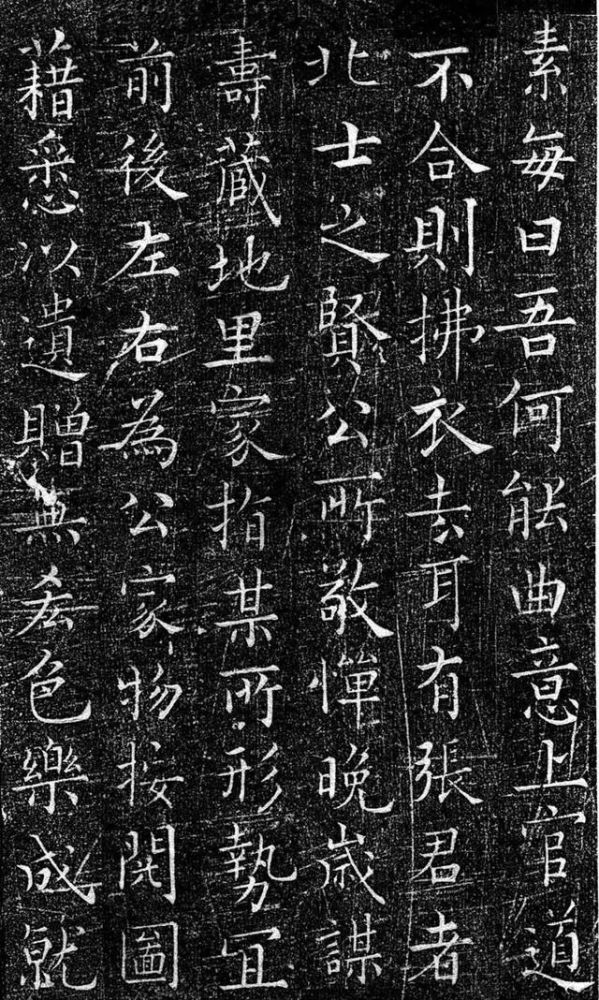 素每曰吾何能曲意上官道
不合則拂衣去耳有張君者
北士之賢公所敬憚晚歲謀
壽藏地里家指某所形勢冝
前後左右為公家物按閱圖
藉悉以遺贈無吝色樂成就